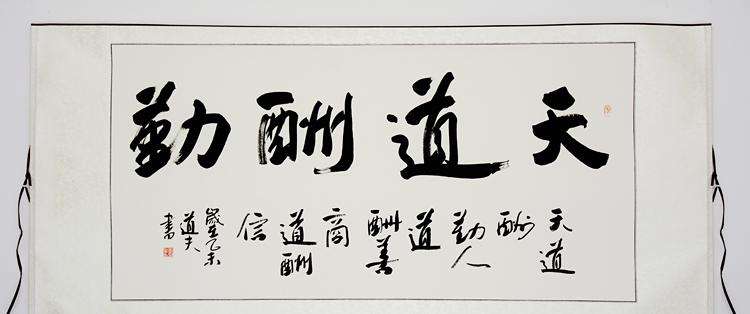 天道酬勤
天道酬勤人道酬善商道酬信
歲在乙未
道夫
書